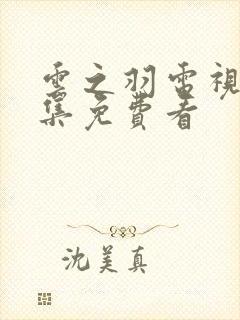 雲之羽電視
集免費看
沈美真